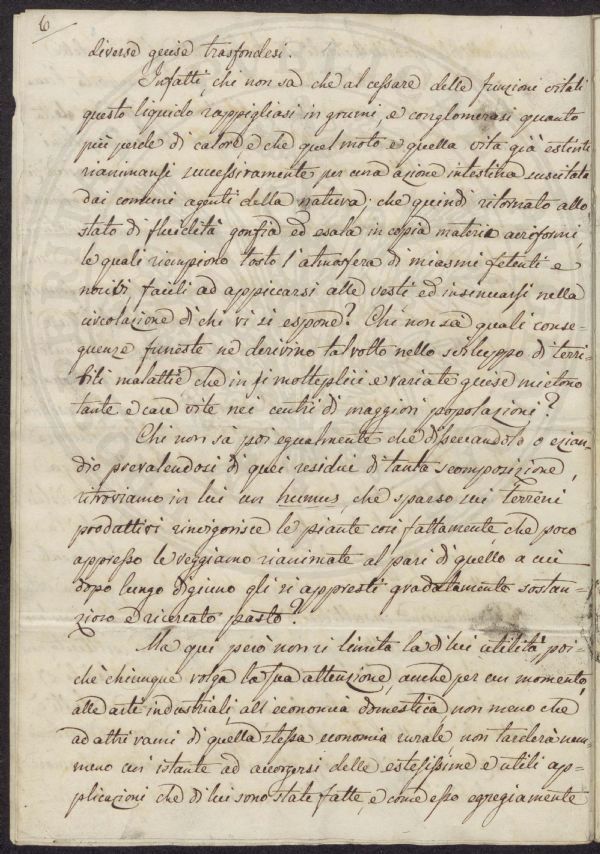 6
diverse guise trasfondesi.
Infatti, chi non sa che al cessare delle funzioni vitali
questo liquido rappigliasi in grumi, e conglomerasi quanto
più perde di calore, e che quel moto e quella vita già estinti
rianimansi successivamente per una azione intestina suscitata
dai comuni agenti della natura: che quindi ritornato allo
stato di fluidità gonfia ed esala in copia materie aeriformi,
le quali riempiono tosto l'atmosfera di miasmi fetenti e
nocivi, facili ad appiccarsi alle vesti ed insinuarsi nella
circolazione di chi vi si espone? Chi non sà quali conse-
guenze funeste ne derivino talvolta nello sviluppo di terri-
bili malattie che in sì molteplici e variate guise mietono
tante e care vite nei centri di maggiori popolazioni?
Chi non sà poi egualmente che disseccandolo o ezian-
dio prevalendosi di quei residui di tanta scomposizione,
ritroviamo in lui un humus, che sparso sui terreni
produttivi rinvigorisce le piante così fattamente, che poco
appresso le veggiamo rianimate al pari di quello a cui
dopo lungo digiuno gli si appresti gradatamente sostan-
zioso e ricercato pasto?
Ma qui però non si limita la di lui utilità, poi-
chè chiunque volga la sua attenzione, anche per un momento,
alle arti industriali, all'economia domestica, non meno che
ad altri rami di quella stessa economia rurale non tarderà nem-
meno un istante ad accorgersi delle estesissime e utili ap-
plicazioni che di lui sono state fatte, e come esso egregiamente